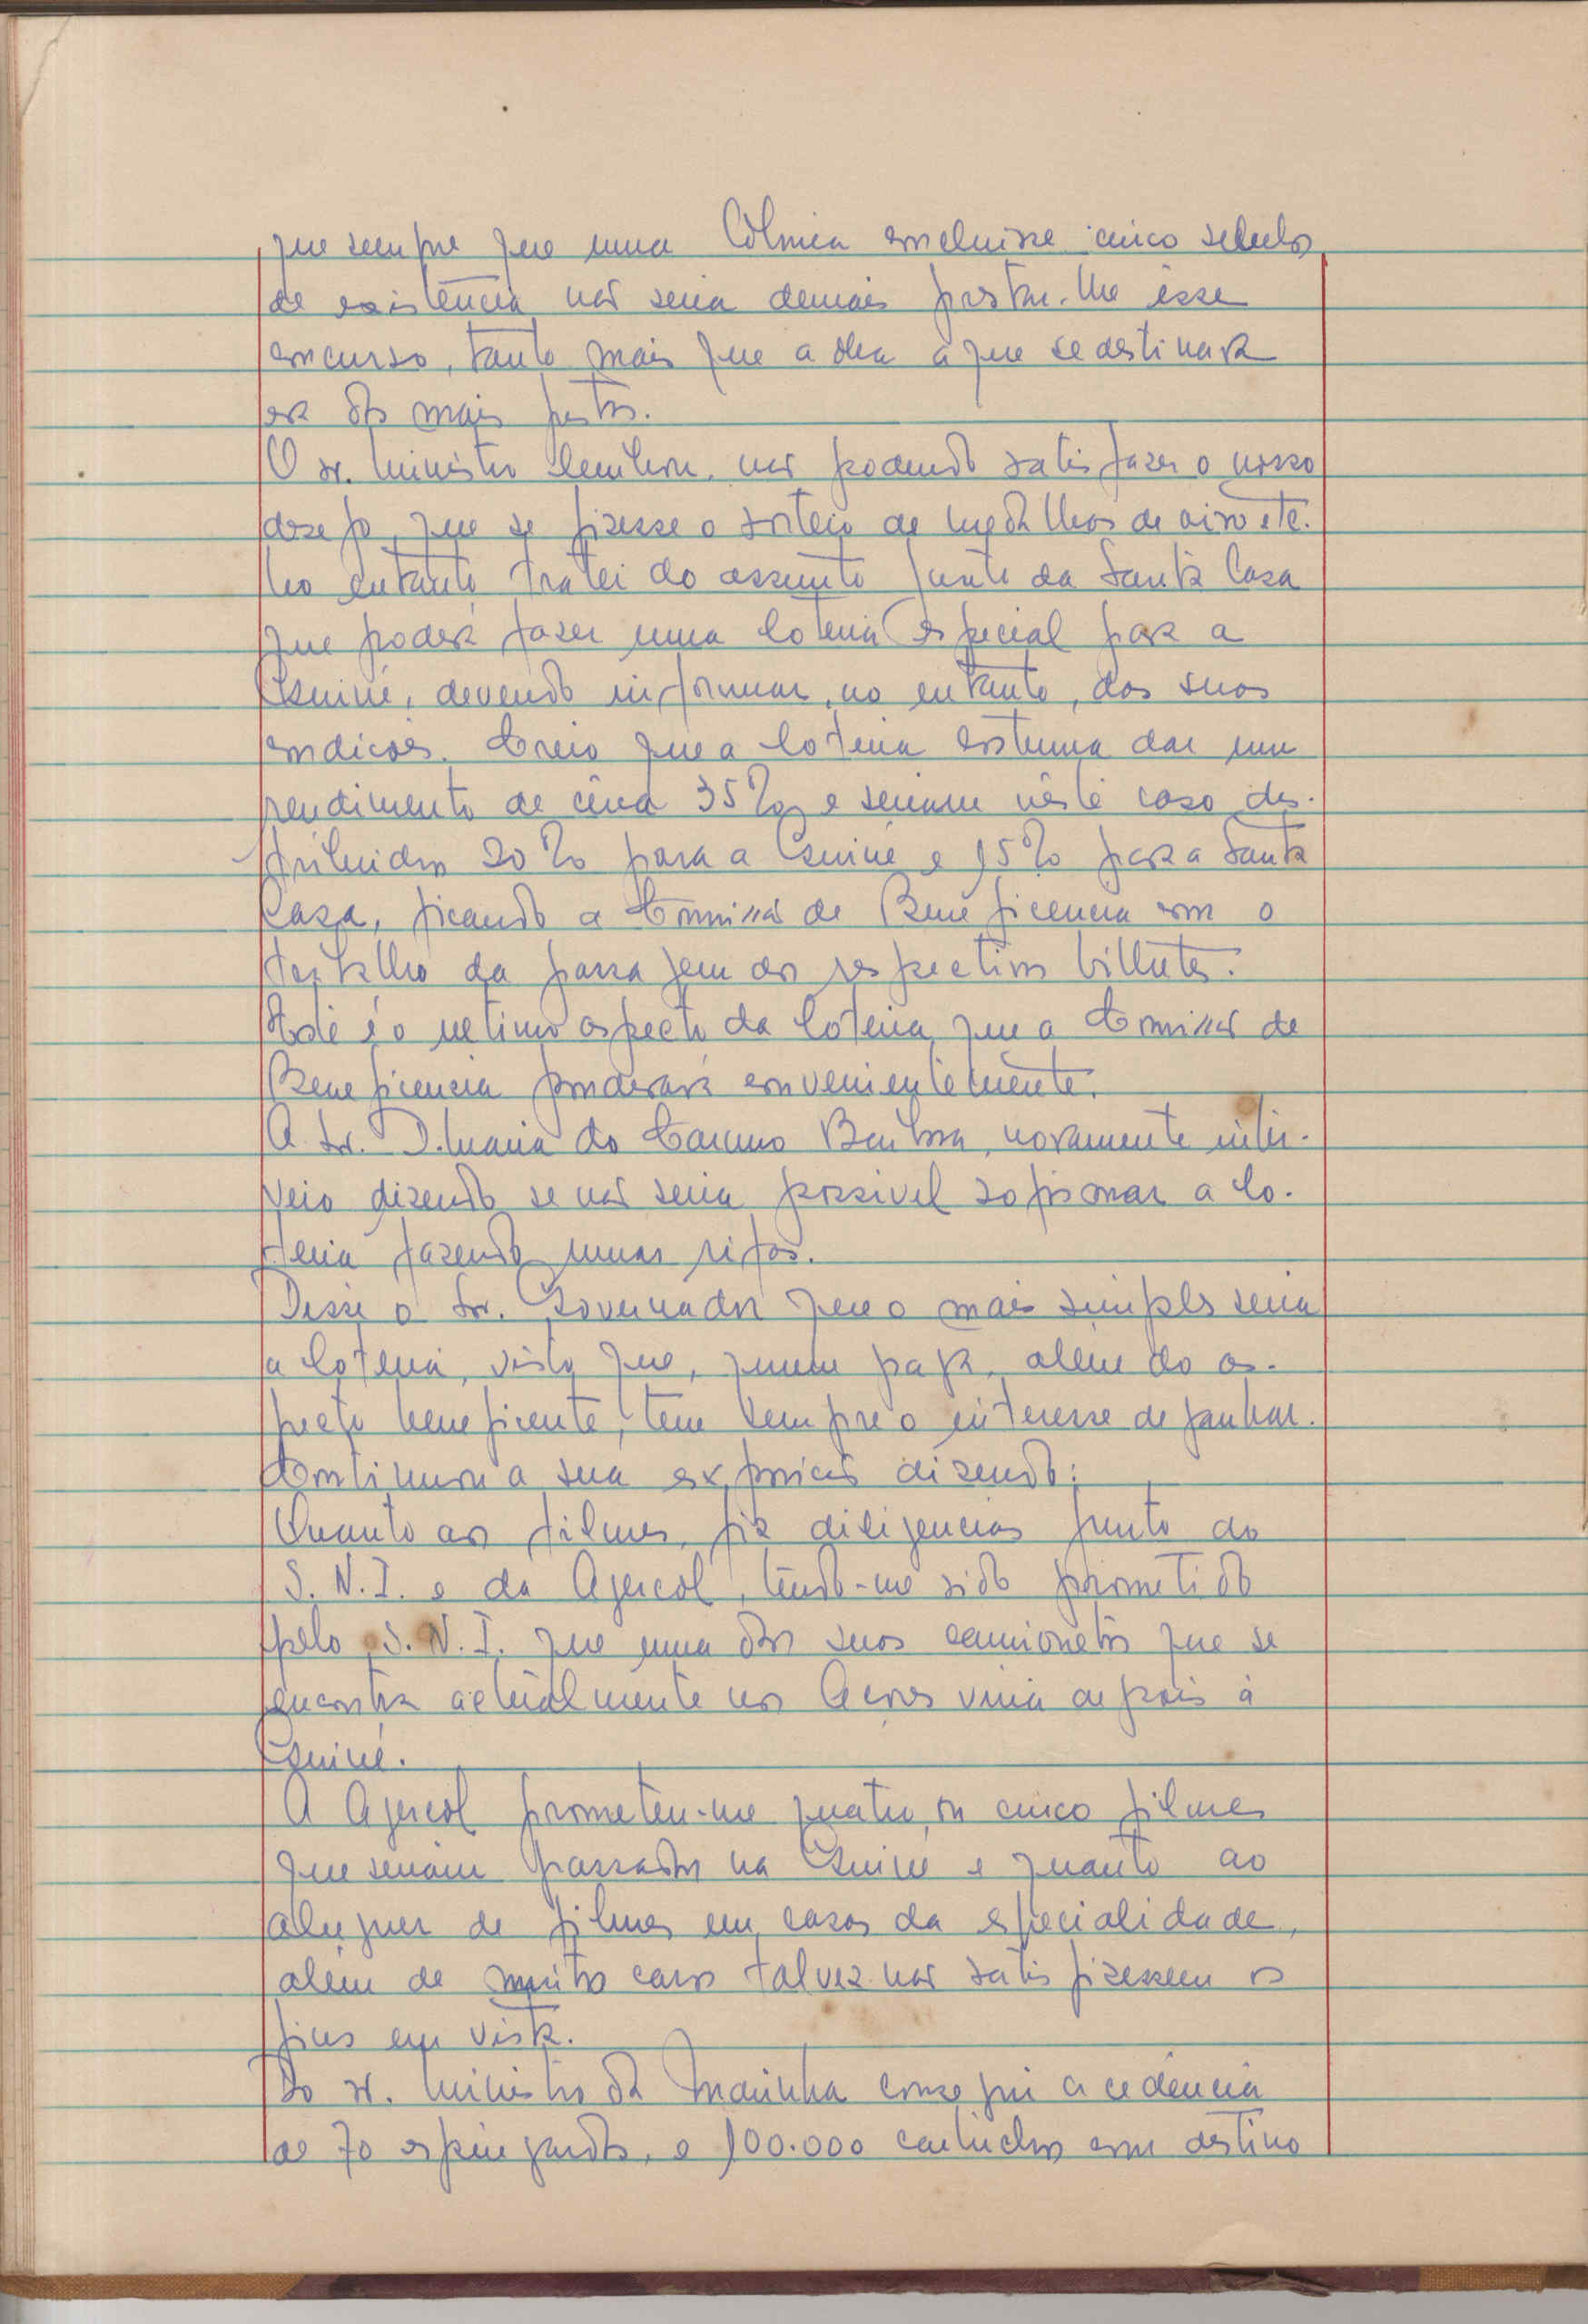 que sempre que uma Colónia concluisse cinco seculos
de existência não seria demais prestar-lhe êsse
concurso, tanto mais que a obra a que se destinava
era das mais justas.
O sr. Ministro lembrou, não podendo satisfazer o nosso
desejo, que se fizesse o sorteio de medalhas de oiro etc.
No entanto tratei do assunto junto da Santa Casa
que poderá fazer uma lotaria especial para a
Guiné, devendo informar, no entanto, das suas
condições. Creio que a lotaria costuma dar um
rendimento de cêrca 35% e seriam nêste caso dis-
tribuidos 20% para a Guiné e 15% para a Santa
Casa, ficando a Comissão de Beneficencia com o
trabalho da passagem dos respectivos bilhetes.
Este é o ultimo aspecto da lotaria que a Comissão de
Beneficencia ponderará convenientemente.
A Sr. D. Maria do Carmo Barbosa, novamente inter-
veio dizendo se não seria possivel sofismar a lo-
taria fazendo umas rifas.
Disse o Sr. Governador que o mais simples seria
a lotaria, visto que, quem paga, além do as-
pecto beneficente, tem sempre o interesse de ganhar.
Continuou a sua exposição dizendo:
Quanto aos filmes, fiz diligencias junto do
S. N. I. e da Agecol, tendo-me sido prometido
pelo S. N. I. que uma das suas camionetas que se
encontra actualmente nos Açores viria depois à
Guiné.
A Agecol prometeu-me quatro ou cinco filmes
que seriam passados na Guiné e quanto ao
aluguer de filmes em casas da especialidade,
além de muito caros talvez não satisfizessem os
fins em vista.
Do sr. Ministro da Marinha consegui a cedência
de 70 espingardas, e 100.000 cartuchos com destino